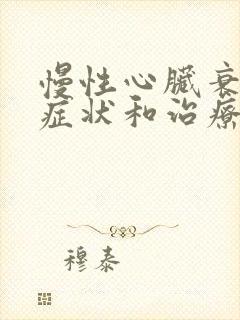 慢性心臟衰
症状和治療
穆泰